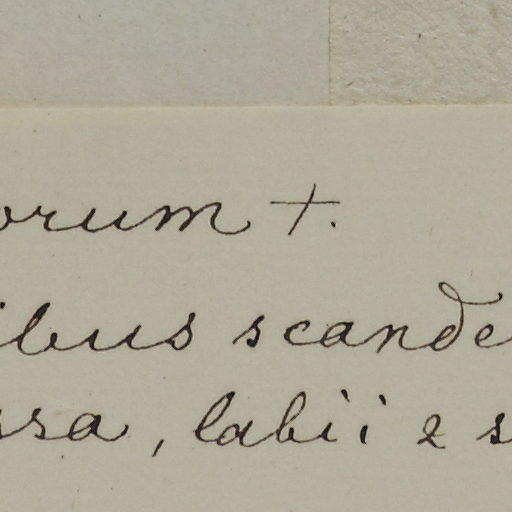 orum +.
ibus scande
ssa, labii 2 s